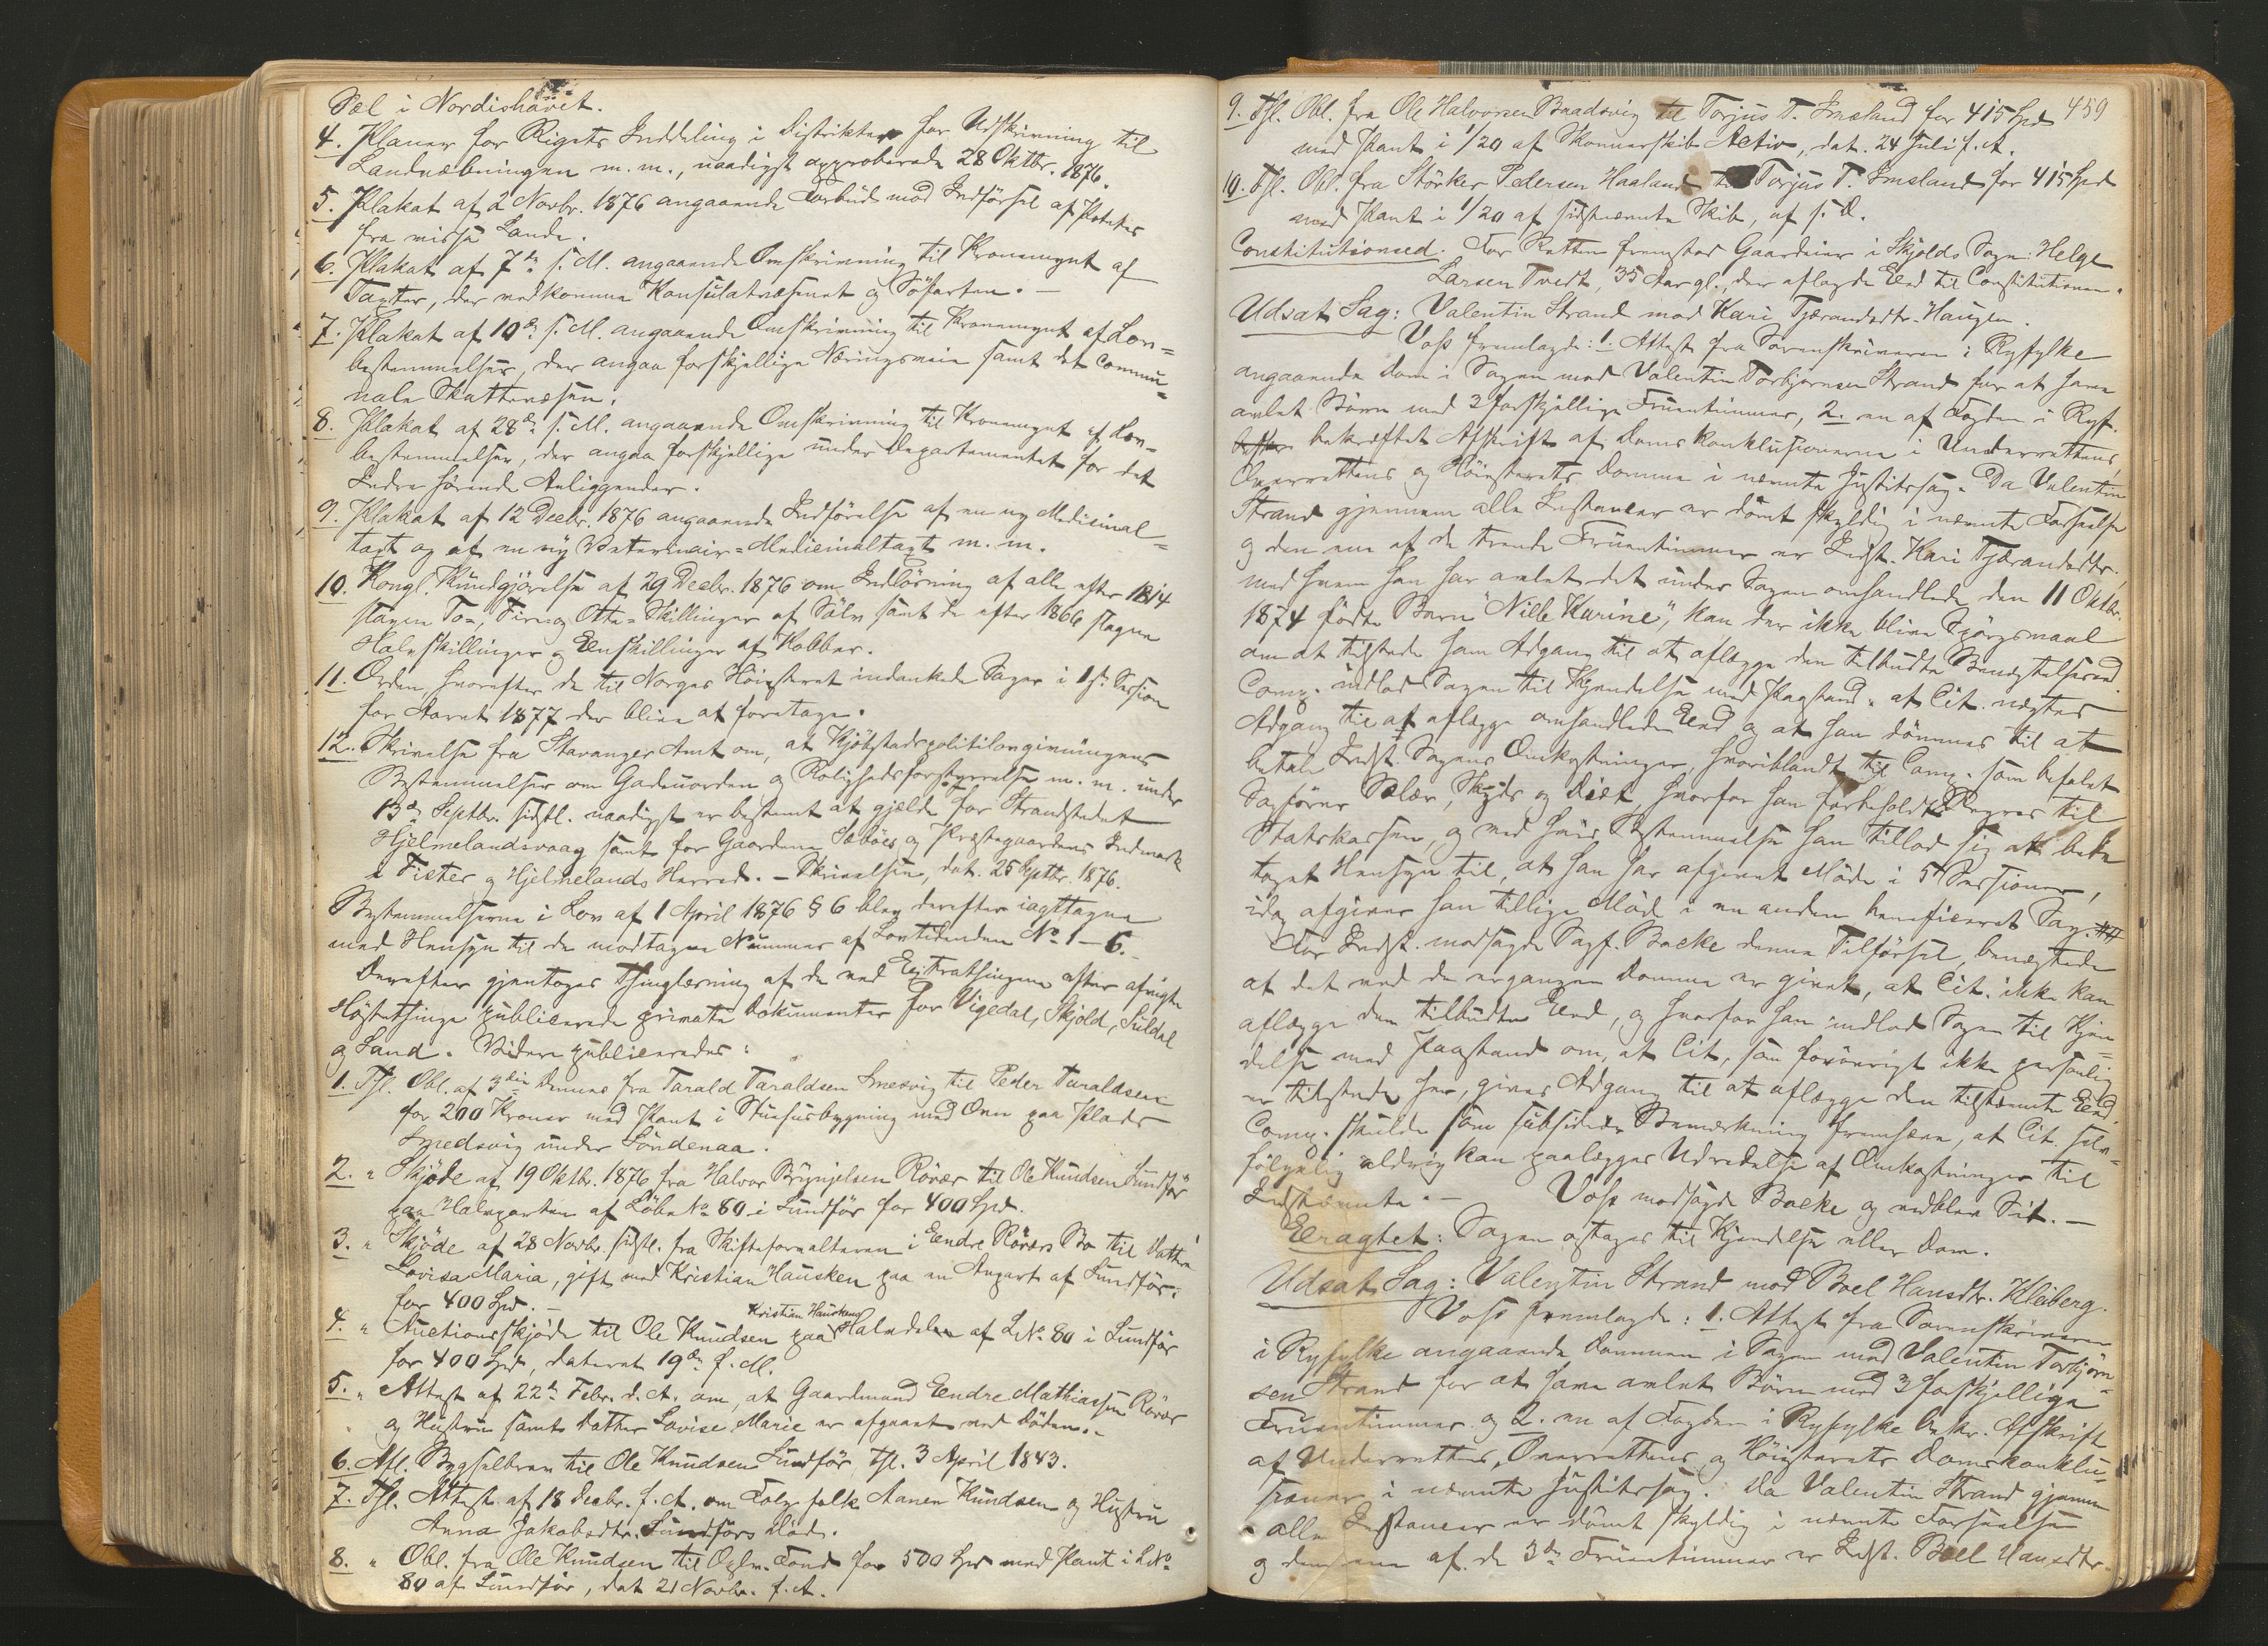 Sæl i Nordishavet.
4. Planer for Rigets Inddeling i Distrikter for Udskrivning til
Landvæbningen m. m., naadigst approberede 28 Oktbr. 1876.
5. Plakat af 2 Novbr. 1876 angaaende Forbud mod Indførsel af Poteter
fra visse Lande.
6. Plakat af 7de s. M. angaaende Omskrivning til Kronemynt af
Taxter, der vedkomme Konsulatvæsenet og Söfarten. —
7. Plakat af 10de s. M. angaaende Omskrivning til Kronemynt af Lov=
bestemmelser, der angaa forskjellige Næringsveie samt det commu=
nale Skattevæsen.
8. Plakat af 28de s. M. angaaende Omskrivning til Kronemynt af Lov=
bestemmelser, der angaa forskjellige under Departementet for det
Indre hörende Anliggender.
9. Plakat af 12 Decbr. 1876 angaaende Indförelse af en ny Medicinal=
taxt og af en ny Veterinair=Medicinaltaxt m. m.
10. Kongl. Kundgjörelse af 29 Decbr. 1876 om Indlösning af alle efter 1814
slagne To=, Fire= og Otte=Skillinger af Sölv samt de efter 1866 slagne
Halvskillinger og Eenskillinger af Kobber.
11. Orden, hvorefter de til Norges Höiesteret indankede Sager i 1ste Session
for Aaret 1877 der blive at foretage.
12. Skrivelse fra Stavanger Amt om, at Kjöbstadspolitilovgivningens
Bestemmelser om Gadeuorden og Rolighedsforstyrrelse m. m. under
13de Septbr. sidstl. naadigst er bestemt at gjælde for Strandstedet
Hjelmelandsvaag samt for Gaardene Sæböes og Præstegaardens Indmark
i Fister og Hjelmelands Herred. — Skrivelsen, dat. 25 Septbr. 1876.
Bestemmelserne i Lov af 1 April 1876 § 6 blev derefter iagttagne
med Hensyn til de modtagne Nummer af Lovtidenden No. 1—6.
Derefter gjentoges Thinglæsning af de ved Extrathingene efter afvigte
Höstething publicerede private Dokumenter for Vigedal, Skjold, Suldal
og Sand. Videre publiceredes:
1. Thl. Obl. af 3die Dennes fra Tarald Taraldsen Smedsvig til Peder Taraldsen
for 200 Kroner med Pant i Stuehusbygning med Ovn paa Plads
Smedsvig under Söndenaa.
2. " Skjöde af 19 Oktbr. 1876 fra Halvor Brynjelsen Rövær til Ole Knudsen Sundför
paa Halvparten af Löbe No. 80 i Sundför for 400 Spd.
3. " Skjöde af 28 Novbr. sidstl. fra Skifteforvalteren i Eendre Rövers Bo til Datter
Lovisa Maria, gift med Kristian Hausken paa en Anpart af Sundför
for 400 Spd. —
4. " Auctionsskjöde til Ole Knudsen paa Kristian Hauskens Halvdelen af LNo. 80 i Sundför
for 400 Spd., dateret 19de f. M.
5. " Attest af 22de Febr. d. A. om, at Gaardmand Eendre Mathiassen Rövær
og Hustru samt Datter Lovise Marie er afgaaet ved Döden.
6. Afl. Bygselbrev til Ole Knudsen Sundför, thl. 3 April 1843.
7. Thl. Attest af 18 Decbr. f. A. om Folgefolk Aanen Knudsen og Hustru
Anna Jakobsdtr. Sundförs Död.
8. " Obl. fra Ole Knudsen til Oplv. Fond for 500 Spd. med Pant i LNo.
80 af Sundför, dat 21 Novbr. f. A.
459
9. Thl. Obl. fra Ole Halvorsen Baadsvig til Torjus T. Imsland for 415 Spd
med Pant i 1/20 af Skonnerskib Activ, dat. 24 Juli f. A.
10. Thl. Obl. fra Störker Pedersen Haaland til Torjus T. Imsland for 415 Spd
med Pant i 1/20 af sidstnævnte Skib, af s. D.
Constitutionsed. For Retten fremstod Gaardeier i Skjolds Sogn: Helge
Larsen Tvedt, 35 Aar gl., der aflagde Eed til Constitutionen.
Udsat Sag: Valentin Strand mod Kari Tjærandsdtr. Haugen.
Voss fremlagde: 1. Attest fra Sorenskriveren i Ryfylke
angaaende Dom i Sagen mod Valentin Torbjørnsen Strand for at have
avlet Börn med 3 forskjellige Fruentimmer, 2. en af Fogden i Ryf.
bekræftet Afskrift af Domskonklusionerne i Underrettens,
Overrettens og Höiesterets Domme i nævnte Justitssag. Da Valentin
Strand gjennem alle Instancer er dömt skyldig i nævnte Forseelse
og den ene af de trende Fruentimmer er Indst. Kari Tjærandsdtr.,
med hvem han har avlet det under Sagen omhandlede den 11 Oktbr.
1874 födte Barn "Nille Karine", kan der ikke blive Spörgsmaal
om at tilstede ham Adgang til at aflægge den tilbudte Benægtelsesed.
Comp. indlod Sagen til Kjendelse med Paastand: at Cit. nægtes
Adgang til at aflægge omhandlede Eed og at han dömmes til at
betale Indst. Sagens Omkostninger, hvoriblandt til Comp. som befalet
Sagförer Salær, Skyds og Diæt, hvorfor han forbeholdt Regres til
Statskassen, og ved hvis Bestemmelse han tillod sig at bede
taget Hensyn til, at han har afgivet Möde i 5 Sessioner,
idag afgiver han tillige Möde i en anden beneficeret Sag.
For Indst. modsagde Sagf. Backe denne Tilførsel, benægtede
at det ved de ergangne Domme er givet, at Cit. ikke kan
aflægge den tilbudte Eed, og hvorfor han indlod Sagen til Kjen=
delse med Paastand om, at Cit., som forövrigt ikke personlig
er tilstede her, gives Adgang til at aflægge den tilstævnte Eed.
Comp. skulde som subsidiær Bemærkning fremhæve, at Cit. selv=
fölgelig aldrig kan paalægges Udredelse af Omkostninger til
Indstævnte. — Voss modsagde Backe og vedblev Sit. —
Eeragtet: Sagen optages til Kjendelse eller Dom.
Udsat Sag: Valentin Strand mod Boel Hansdtr. Kleiberg.
Voss fremlagde: 1. Attest fra Sorenskriveren
i Ryfylke angaaende Dommen i Sagen mod Valentin Torbjörn=
sen Strand for at have avlet Börn med 3 forskjellige
Fruentimmer og 2. en af Fogden i Ryfylke bekr. Afskrift
af Underrettens, Overrettens og Höiesterets Domskonklu=
sioner i nævnte Justitssag. Da Valentin Strand gjennem
alle Instancer er dömt skyldig i nævnte Forseelse
og den ene af de 3de Fruentimmer er Indst. Boel Hansdtr.